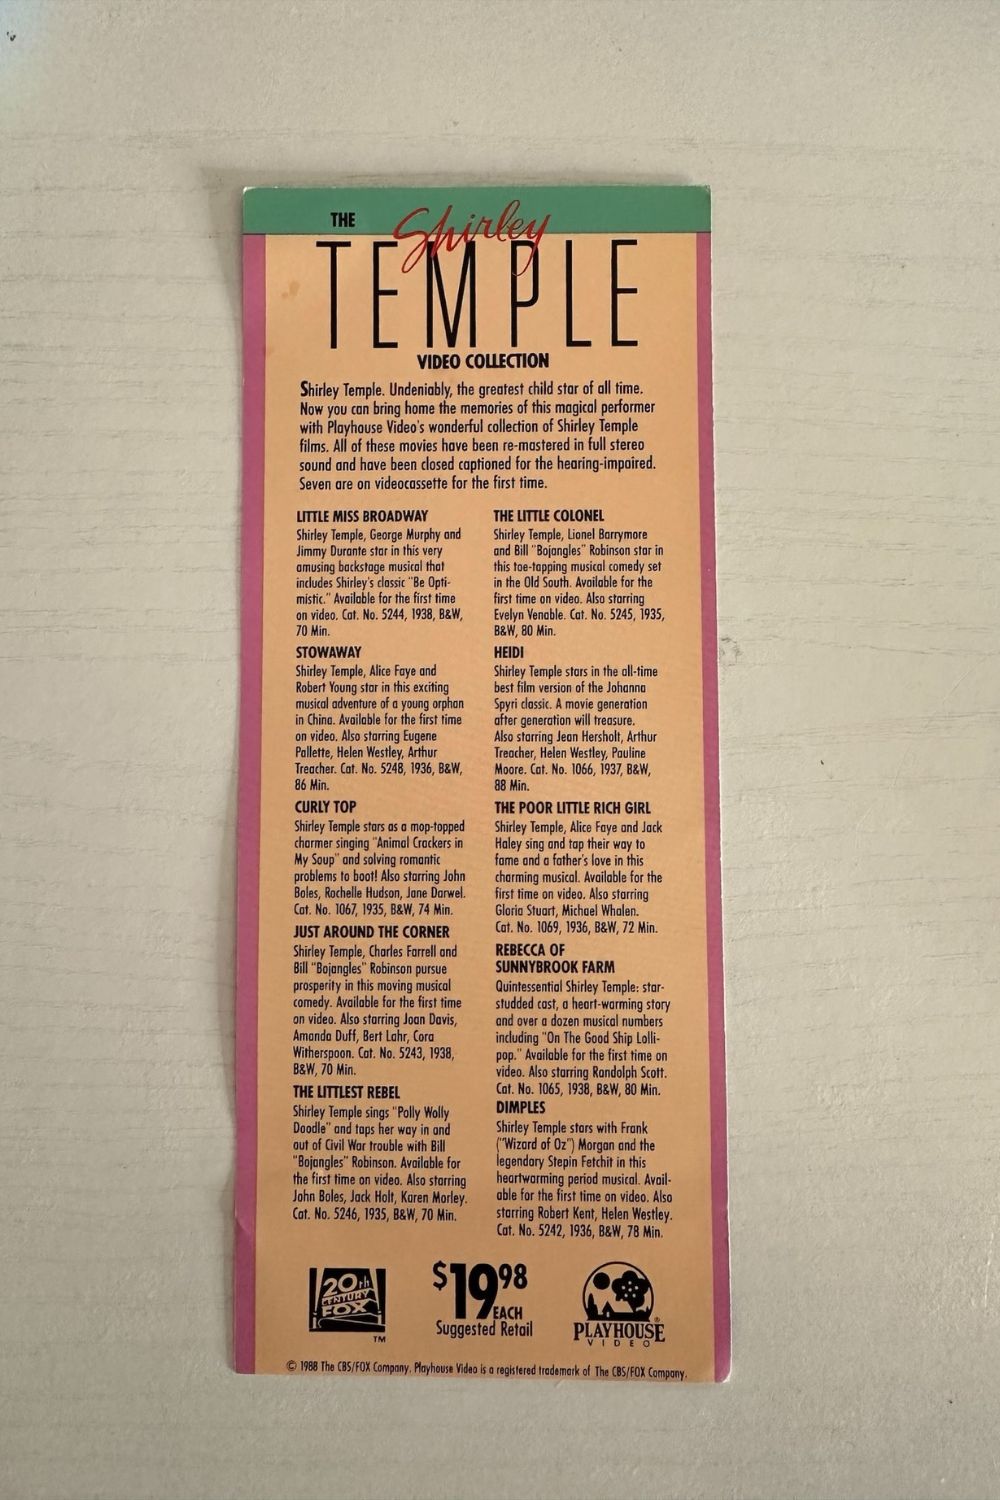 THE Shirley
TEMPLE
VIDEO COLLECTION
Shirley Temple. Undeniably, the greatest child star of all time.
Now you can bring home the memories of this magical performer
with Playhouse Video's wonderful collection of Shirley Temple
films. All of these movies have been re-mastered in full stereo
sound and have been closed captioned for the hearing-impaired.
Seven are on videocassette for the first time.
LITTLE MISS BROADWAY
Shirley Temple, George Murphy and
Jimmy Durante star in this very
amusing backstage musical that
includes Shirley's classic "Be Opti-
mistic." Available for the first time
on video. Cat. No. 5244, 1938, B&W,
70 Min.
STOWAWAY
Shirley Temple, Alice Faye and
Robert Young star in this exciting
musical adventure of a young orphan
in China. Available for the first time
on video. Also starring Eugene
Pallette, Helen Westley, Arthur
Treacher. Cat. No. 5248, 1936, B&W,
86 Min.
CURLY TOP
Shirley Temple stars as a mop-topped
charmer singing "Animal Crackers in
My Soup" and solving romantic
problems to boot! Also starring John
Boles, Rochelle Hudson, Jane Darwel.
Cat. No. 1067, 1935, B&W, 74 Min.
JUST AROUND THE CORNER
Shirley Temple, Charles Farrell and
Bill "Bojangles" Robinson pursue
prosperity in this moving musical
comedy. Available for the first time
on video. Also starring Joan Davis,
Amanda Duff, Bert Lahr, Cora
Witherspoon. Cat. No. 5243, 1938,
B&W, 70 Min.
THE LITTLEST REBEL
Shirley Temple sings "Polly Wolly
Doodle" and taps her way in and
out of Civil War trouble with Bill
"Bojangles" Robinson. Available for
the first time on video. Also starring
John Boles, Jack Holt, Karen Morley.
Cat. No. 5246, 1935, B&W, 70 Min.
THE LITTLE COLONEL
Shirley Temple, Lionel Barrymore
and Bill "Bojangles" Robinson star in
this toe-tapping musical comedy set
in the Old South. Available for the
first time on video. Also starring
Evelyn Venable. Cat. No. 5245, 1935,
B&W, 80 Min.
HEIDI
Shirley Temple stars in the all-time
best film version of the Johanna
Spyri classic. A movie generation
after generation will treasure.
Also starring Jean Hersholt, Arthur
Treacher, Helen Westley, Pauline
Moore. Cat. No. 1066, 1937, B&W,
88 Min.
THE POOR LITTLE RICH GIRL
Shirley Temple, Alice Faye and Jack
Haley sing and tap their way to
fame and a father's love in this
charming musical. Available for the
first time on video. Also starring
Gloria Stuart, Michael Whalen.
Cat. No. 1069, 1936, B&W, 72 Min.
REBECCA OF
SUNNYBROOK FARM
Quintessential Shirley Temple: star-
studded cast, a heart-warming story
and over a dozen musical numbers
including "On The Good Ship Lolli-
pop." Available for the first time on
video. Also starring Randolph Scott.
Cat. No. 1065, 1938, B&W, 80 Min.
DIMPLES
Shirley Temple stars with Frank
("Wizard of Oz") Morgan and the
legendary Stepin Fetchit in this
heartwarming period musical. Avail-
able for the first time on video. Also
starring Robert Kent, Helen Westley.
Cat. No. 5242, 1936, B&W, 78 Min.
20th
CENTURY
FOX
TM
$19.98
EACH
Suggested Retail
PLAYHOUSE®
VIDEO
© 1988 The CBS/FOX Company. Playhouse Video is a registered trademark of The CBS/FOX Company.